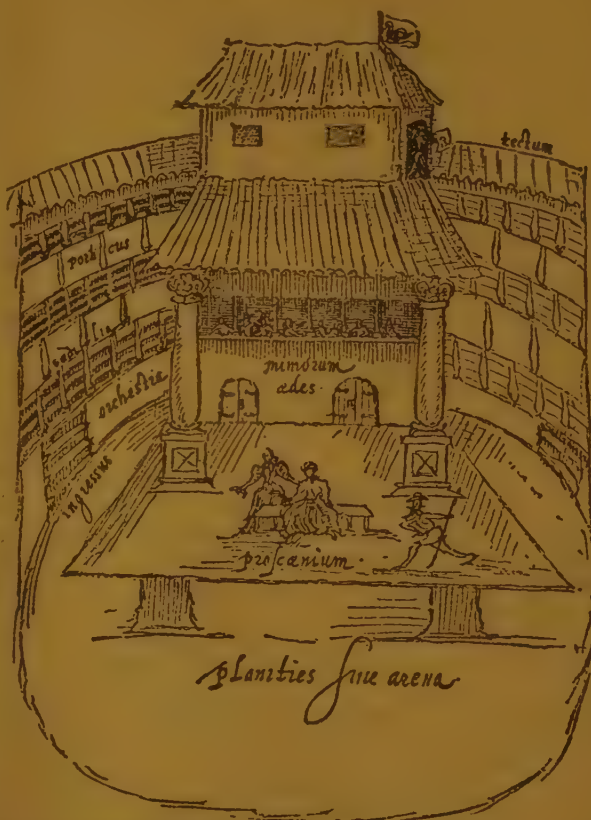 tectum
porticus
sedilia
orchestra
mimorum
ædes.
ingressus
proscænium.
planities siue arena